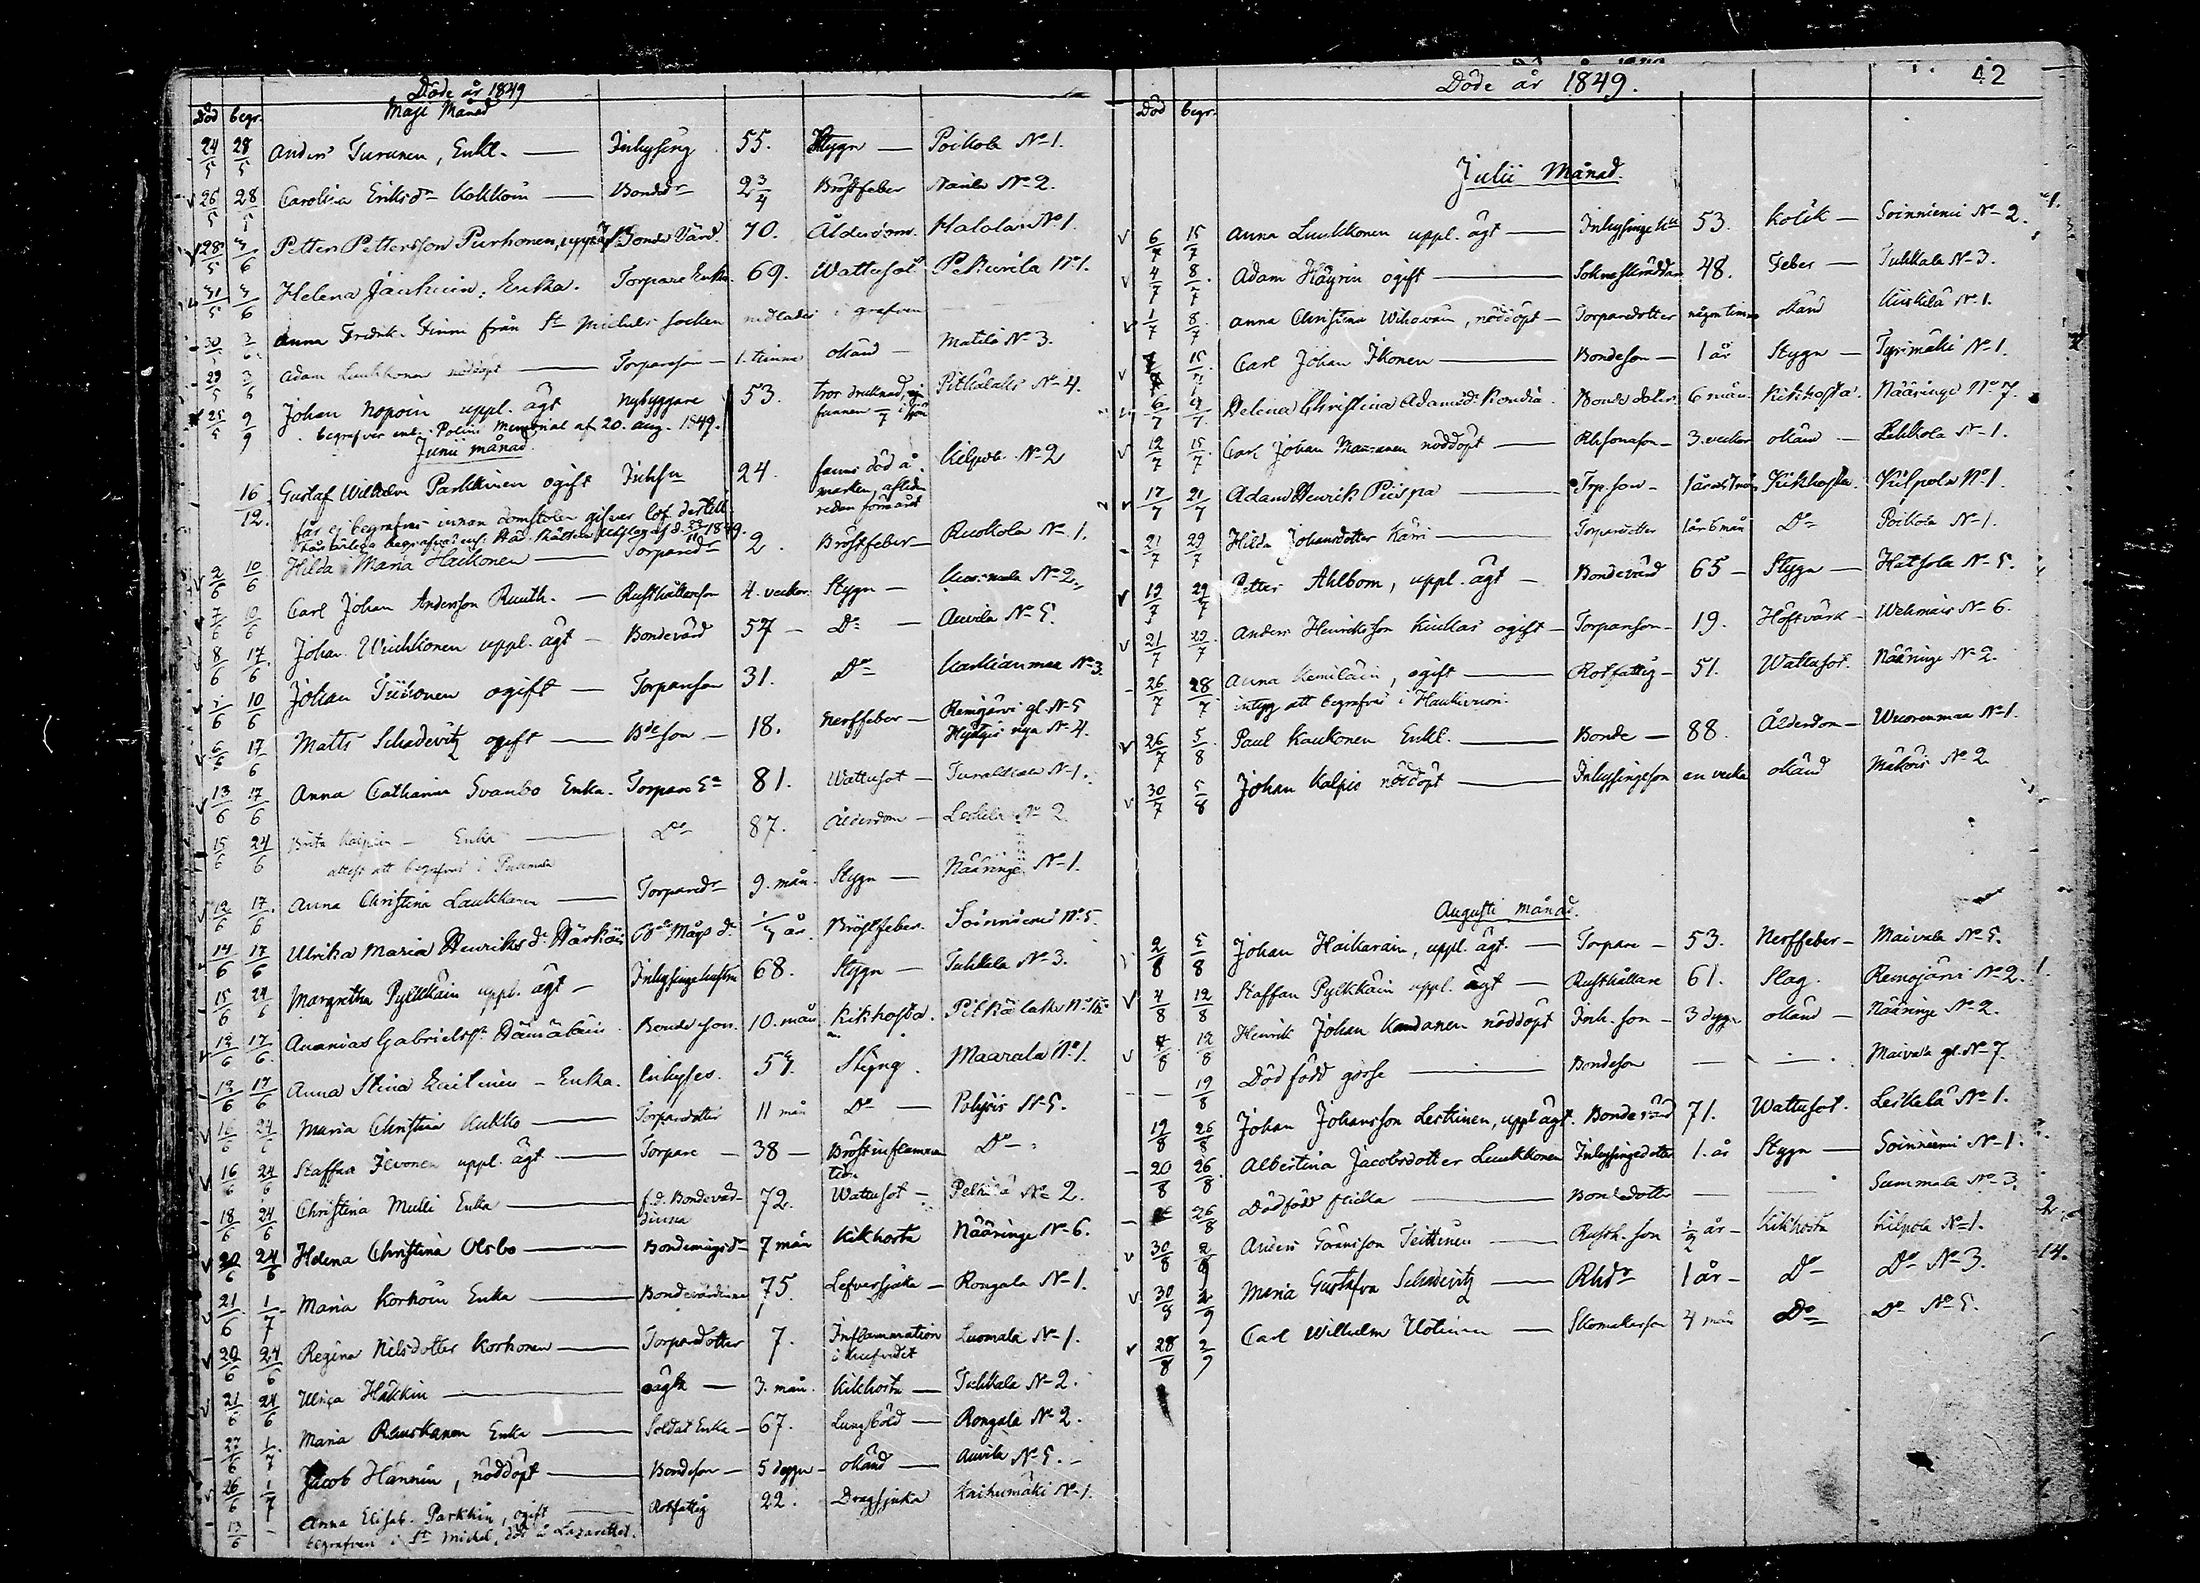 Döde år 1849
Maji Månad
Död begr.
24/5 28/5 Anders Turunen, Enkl. — Inhysing 55. Stygn — Poikola No 1.
26/5 28/5 Carolina Eriksdr Kokkoin — Bondedr 2 3/4 Bröstfeber Naula No 2.
28/5 3/6 Petter Pettersson Purhonen, uppl. ägt Bonde Värd. 70. Ålderdom. Halola No 1.
31/5 3/6 Helena Jäuhiein: Enka. Torpare Enka. 69. Wattusot Pekurila No 1.
30/5 3/6 Anna Fredrik. Finni från St Michels socken nedlades i grafven
29/5 3/6 Adam Luukkonen nöddöpt — Torpareson — 1. timme okänd — Matila No 3.
25/5 9/9 Johan Nopoin uppl. ägt nybyggare 53. tros drucknad, funnen i sjön Pitkälaks No 4.
begrafven enl. Polini Memorial af 20. aug. 1849.
Junii månad.
16/12. Gustaf Wilhelm Parkkinen ogift Inhsn 24. fanns död å marken, afliden redan förra året Kilpola No 2
får ej begrafvas innan domstolen gifver lof dertill
1849.
2/6 10/6 Hilda Maria Haikonen — Torparedr 2. Bröstfeber — Ruokola No 1.
7/6 10/6 Carl Johan Andersson Ruuth. — Rusthållareson 4. veckor. Stygn — No 2.
8/6 17/6 Johan Weikkonen uppl. ägt — Bondevärd 57 — Do — Auvila No 5.
10/6 Johan Tiihonen ogift — Torpareson 31. Do Karkiaumaa No 3.
6/6 17/6 Matts Schadevitz ogift — Bdeson — 18. Nerffeber — Remojärvi gl. No 5
nya No 4.
13/6 17/6 Anna Catharina Svanbo Enka. Torpare Ea 81. Wattusot — No 1.
15/6 24/6 Brita Kalpiin — Enka — Do 87. Ålderdom — Leskelä No 2.
attest att begrafvas i Puumala
12/6 17/6 Anna Christina Laukkanen — Torparedr 9. mån. Stygn — Nääringi No 1.
14/6 17/6 Ulrika Maria Henriksdr Härköin Bde Mågs dr. år. Bröstfeber. Soinniemi No 5.
15/6 24/6 Margretha Pylkkäin uppl. ägt — Inhysingehustru 68. Stygn — Tuhkala No 3.
12/6 17/6 Ananias Gabrielss. Hämäläin Bondeson. 10. mån Kikhosta. Pitkälaks
12/6 17/6 Anna Stina — Enka. Inhyses. 57. Styng. Maarala No 1.
16/6 24/6 Maria Christina Kukko — Torparedotter 11 mån Do — Pohjois No 5.
16/6 24/6 Staffan Ilvonen uppl. ägt — Torpare — 38 — Bröstinflammation Do —
18/6 24/6 Christina Mulli Enka — f.d. Bondevärdinna 72. Wattusot — No 2.
20/6 24/6 Helena Christina Olsbo — Bondemågsdr 7 mån Kikhosta Nääringe No 6.
21/6 1/7 Maria Korhoin Enka — Bondevärdinna 75. Lefversjuka — Rongala No 1.
20/6 24/6 Regina Nilsdotter Korhonen — Torparedotter 7. Inflammation i hufvudet Luomala No 1.
21/6 24/6 Ulrica Häkkin — oägta — 3. mån. Kikhosta — Tuhkala No 2.
27/6 1/7 Maria Rauskanen Enka — Soldat Enka — 67. Lungböld — Rongala No 2.
26/6 1/7 Jacob Hännin, nöddöpt — Bondeson — 5 dygn — okänd — Auvila No 5. —
13/6 — Anna Elisab. Parkkin, ogift — Rotfattig 22. Dragsjuka Kaihumäki No 1.
begrafven i St Michel, död å Lazarettet.
42
Döde år 1849.
Död begr.
Julii Månad.
6/7 15/7 Anna Luukkonen uppl. ägt — Inhysinge hu 53. Kolik — Soinniemi No 2.
4/7 8/7 Adam Häyrin ogift — Sockneskräddare 48. Feber — Tuhkala No 3.
1/7 8/7 Anna Christina Wihavain, nöddöpt — Torparedotter några timmar okänd Kiiskilä No 1.
15/7 Carl Johan Ikonen — Bondeson — 1 år Stygn — Tyrimäki No 1.
6/7 Helena Christina Adamsdr Rondia. Bonde dotter 6 mån. Kikhosta. Nääringe No 7.
12/7 15/7 Carl Johan nöddöpt — Rhsonason — 3. veckor okänd — No 1.
17/7 21/7 Adam Henrik Piispa — Trp. son — Kikhosta. Kilpola No 1.
21/7 29/7 Hilda Johansdotter Käsri — Torparedotter 1 år 6 mån Do Poikola No 1.
19/7 29/7 Petter Ahlbom, uppl. ägt — Bondevärd 65 — Stygn — Hatsola No 5.
21/7 29/7 Anders Henriksson Kuikas ogift — Torpareson — 19. Höftvärk — Wehmais No 6.
26/7 28/7 Anna Kemiläin, ogift — Rotfattig — 51. Wattusot. Nääringe No 2.
intyg att begrafvas i Haukivuori.
26/7 5/8 Paul Kaukonen Enkl. — Bonde — 88. Ålderdom — Wuorenmaa No 1.
30/7 5/8 Johan Kalpio nöddöpt — Inhysingeson en vecka okänd Mäkois No 2
Augusti månad.
2/8 5/8 Johan Haikarain, uppl. ägt — Torpare — 53. Nerffeber — Maivala No 5.
4/8 12/8 Staffan Pylkkäin uppl. ägt — Rusthållare 61. Slag. Remojärvi No 2.
7/8 12/8 Henrik Johan Kandanen nöddöpt Inh. son — 3 dygn okänd — Nääringe No 2.
— 19/8 Död född gosse — Bondeson — — Maivala gl. No 7.
19/8 26/8 Johan Johansson Leskinen, uppl. ägt. Bondevärd 71. Wattusot. Leskelä No 1.
20/8 26/8 Albertina Jacobsdotter Luukkonen Inhysingedotter 1. år Stygn — Soinniemi No 1.
26/8 Dödfödd flicka — Bondedotter — — Summala No 3.
30/8 2/9 Anders Göransson Teittinen — Rusth. son 1/2 år — Kikhosta Kilpola No 1.
30/8 2/9 Maria Gustafva Schadevitz — Rhdr 1 år — Do Do No 3.
28/8 2/9 Carl Wilhelm Utrinen — Skomakareson 4 mån Do Do No 5.